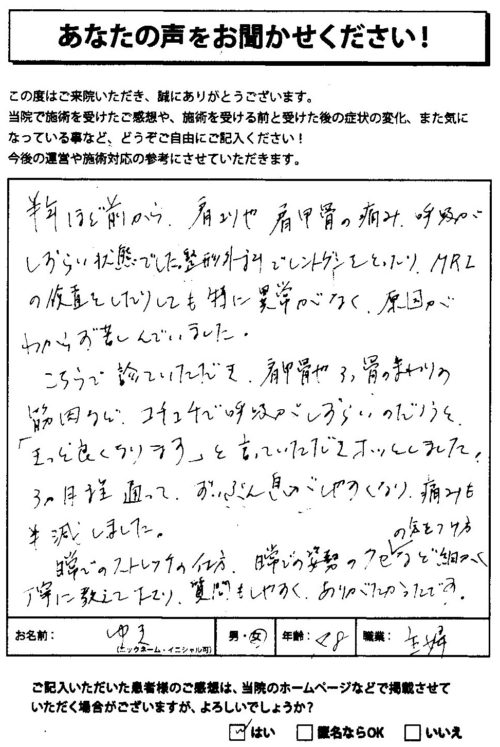 あなたの声をお聞かせください！
この度はご来院いただき、誠にありがとうございます。
当院で施術を受けたご感想や、施術を受ける前と受けた後の症状の変化、また気に
なっている事など、どうぞご自由にご記入ください！
今後の運営や施術対応の参考にさせていただきます。
半年ほど前から、肩コリや肩甲骨の痛み、呼吸が
しづらい状態でした。整形外科でレントゲンをとったり、MRI
の検査をしたりしても特に異常がなく、原因が
わからず苦しんでいました。
こちらで診ていただき、肩甲骨やろっ骨のまわりの
筋肉など、コチコチで呼吸がしずらいのだろうと、
「きっと良くなります」と言っていただきホッとしました！
3ヵ月程通って、ずいぶん息がしやすくなり、痛みも
半減しました。
の気をつけ方
日常でのストレッチの仕方、日常での姿勢のクセなど細かく
丁寧に教えて下さり、質問もしやすく、ありがたかったです。
お名前： ゆき 男・女 年齢： 48 職業： 主婦
(ニックネーム・イニシャル可)
ご記入いただいた患者様のご感想は、当院のホームページなどで掲載させて
いただく場合がございますが、よろしいでしょうか？
はい 匿名ならOK いいえ